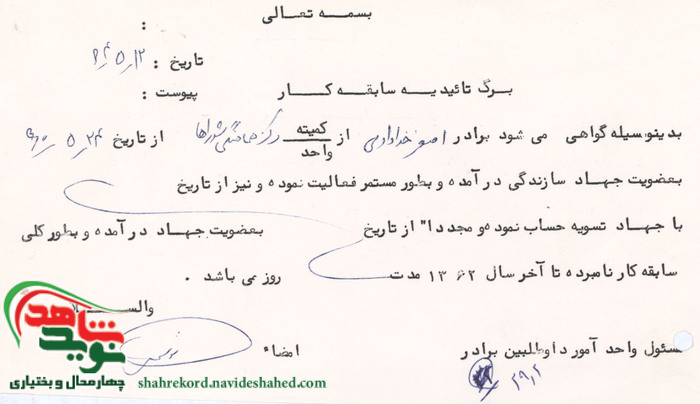 بسمه تعالی
:
تاریخ :
برگ تائیدیه سابقه کار
پیوست :
بدینوسیله گواهی می شود برادر از کمیته واحد از تاریخ
بعضویت جهاد سازندگی درآمده و بطور مستمر فعالیت نموده و نیز از تاریخ
با جهاد تسویه حساب نموده و مجددا" از تاریخ بعضویت جهاد درآمده و بطور کلی
سابقه کار نامبرده تا آخر سال ۱۳۶۲ مدت روز می باشد .
مسئول واحد آمور داوطلبین برادر امضاء
نوید شاهد
چهارمحال و بختیاری
shahrekord.navideshahed.com